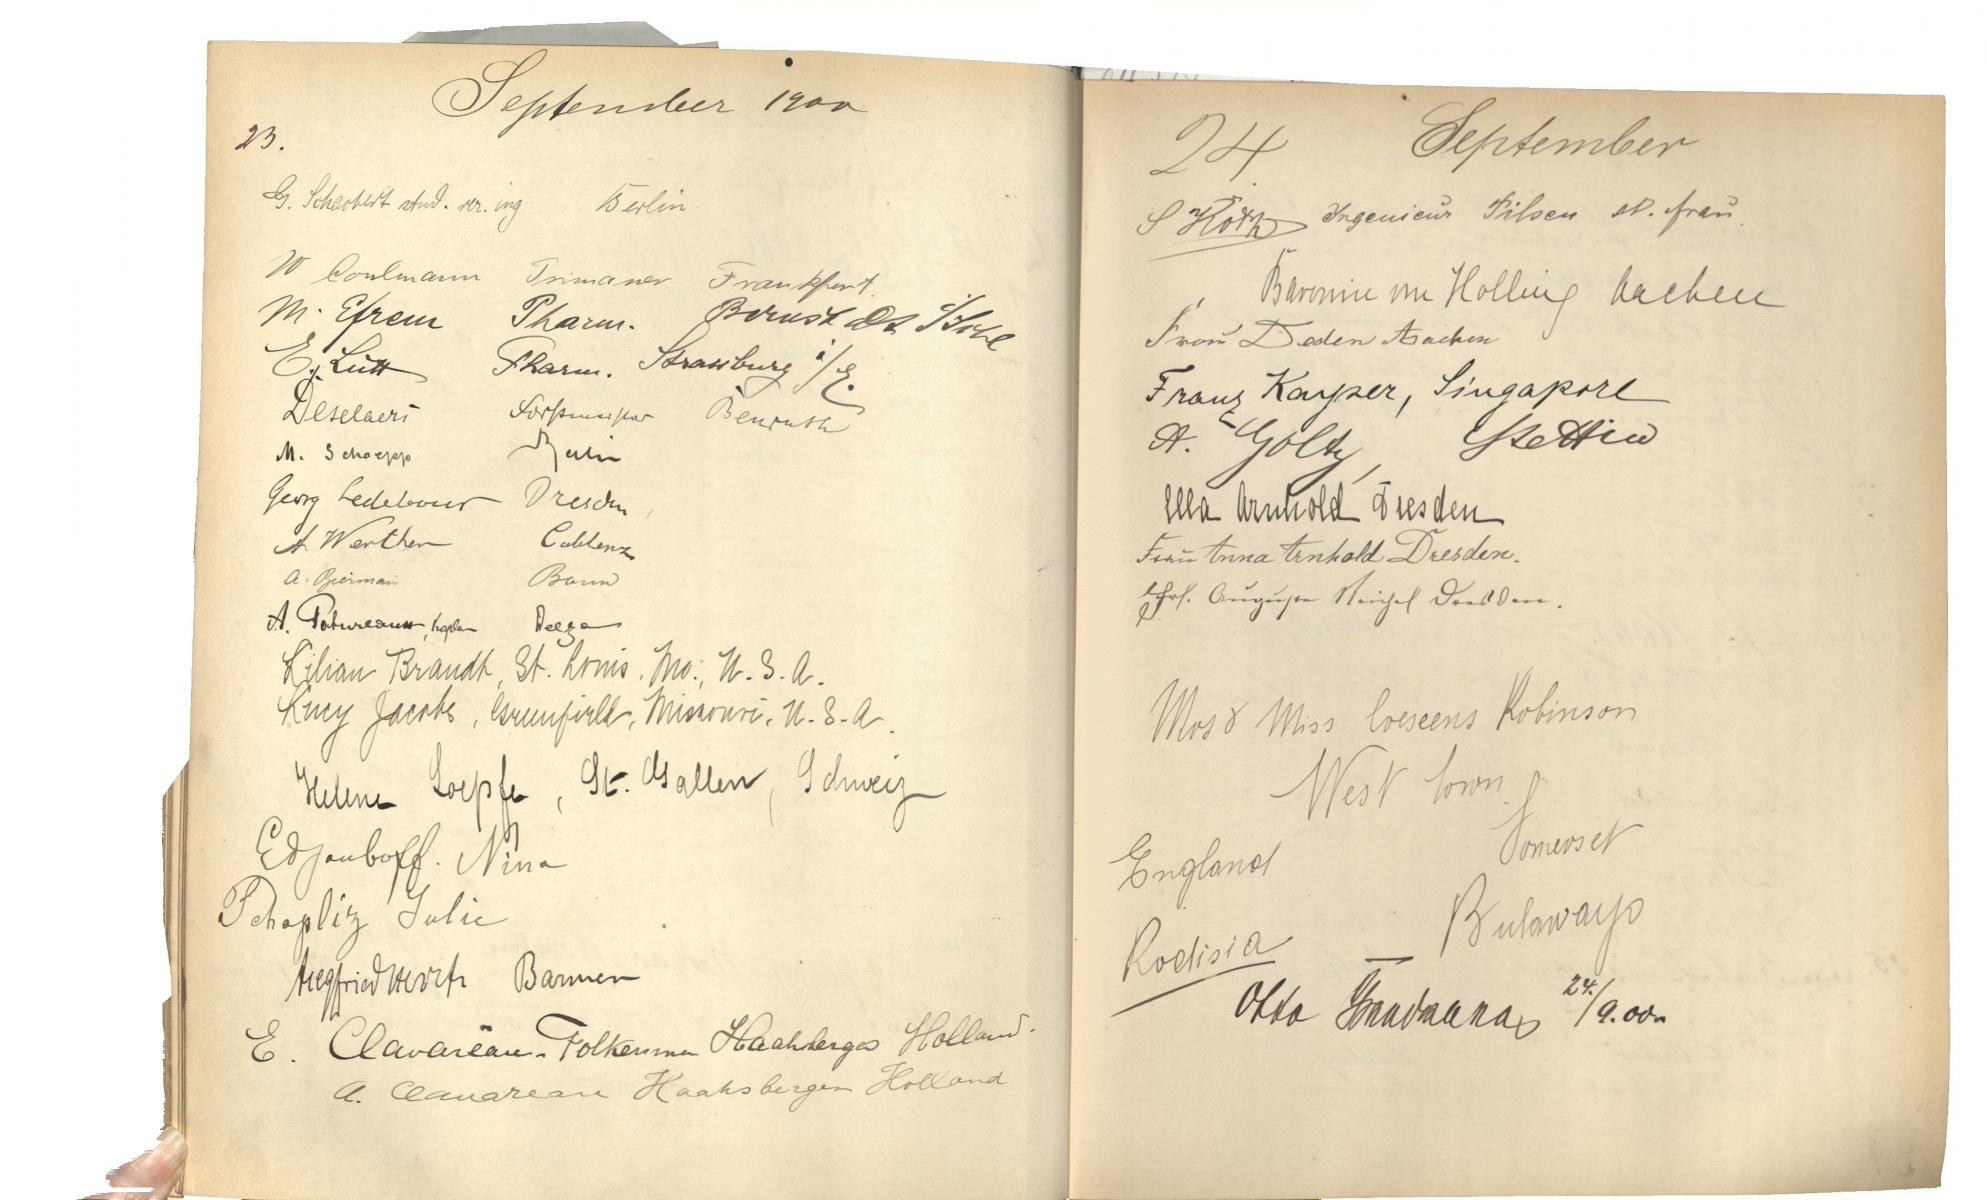 September 1900
23.
G. Scherbert stud. rer. ing Berlin
W Coulmann Primaner Frankfurt.
M. Efrem Pharm.
E. Lutt Pharm. Strassburg i/E.
Deselaers Benrath
M. Schoepp Berlin
Georg Ledebour Dresden
A Werther Coblenz
A. Bierman Bonn
A. Kaplan
Lilian Brandt, St. Louis, Mo., U.S.A.
Lucy Jacobs, Greenfield, Missouri, U.S.A.
Helene Loepfe, St. Gallen, Schweiz
Edjouboff. Nina
Tchaplitz Julie
Siegfried Herz Barmen
E. Clavareau-Folkersma Haaksbergen Holland.
A. Clavareau Haaksbergen Holland
24 September
S Ingenieur Pilsen frau.
Baronin von Aachen
Frau Deden Aachen
Franz Kayser, Singapore
A. Goltz, Stettin
Ella Arnhold Dresden
Frau Anna Arnhold Dresden.
Frl. Auguste Reichel Dresden.
Miss Robinson
West Town
Somerset
England
Bulawayo
Rodisia
Otto 24./9.00.